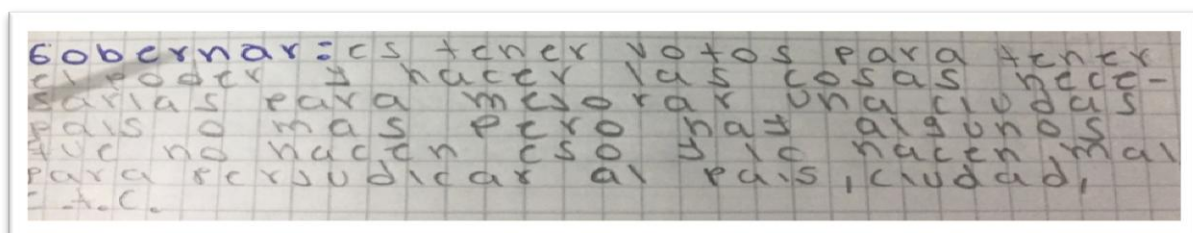 Gobernar= es tener votos para tener
el poder y hacer las cosas nece-
sarias para mejorar una ciudas
pais o mas pero hay algunos
que no hacen eso y lo hacen mal
para perjudicar al pais, ciudad,
e.t.c.